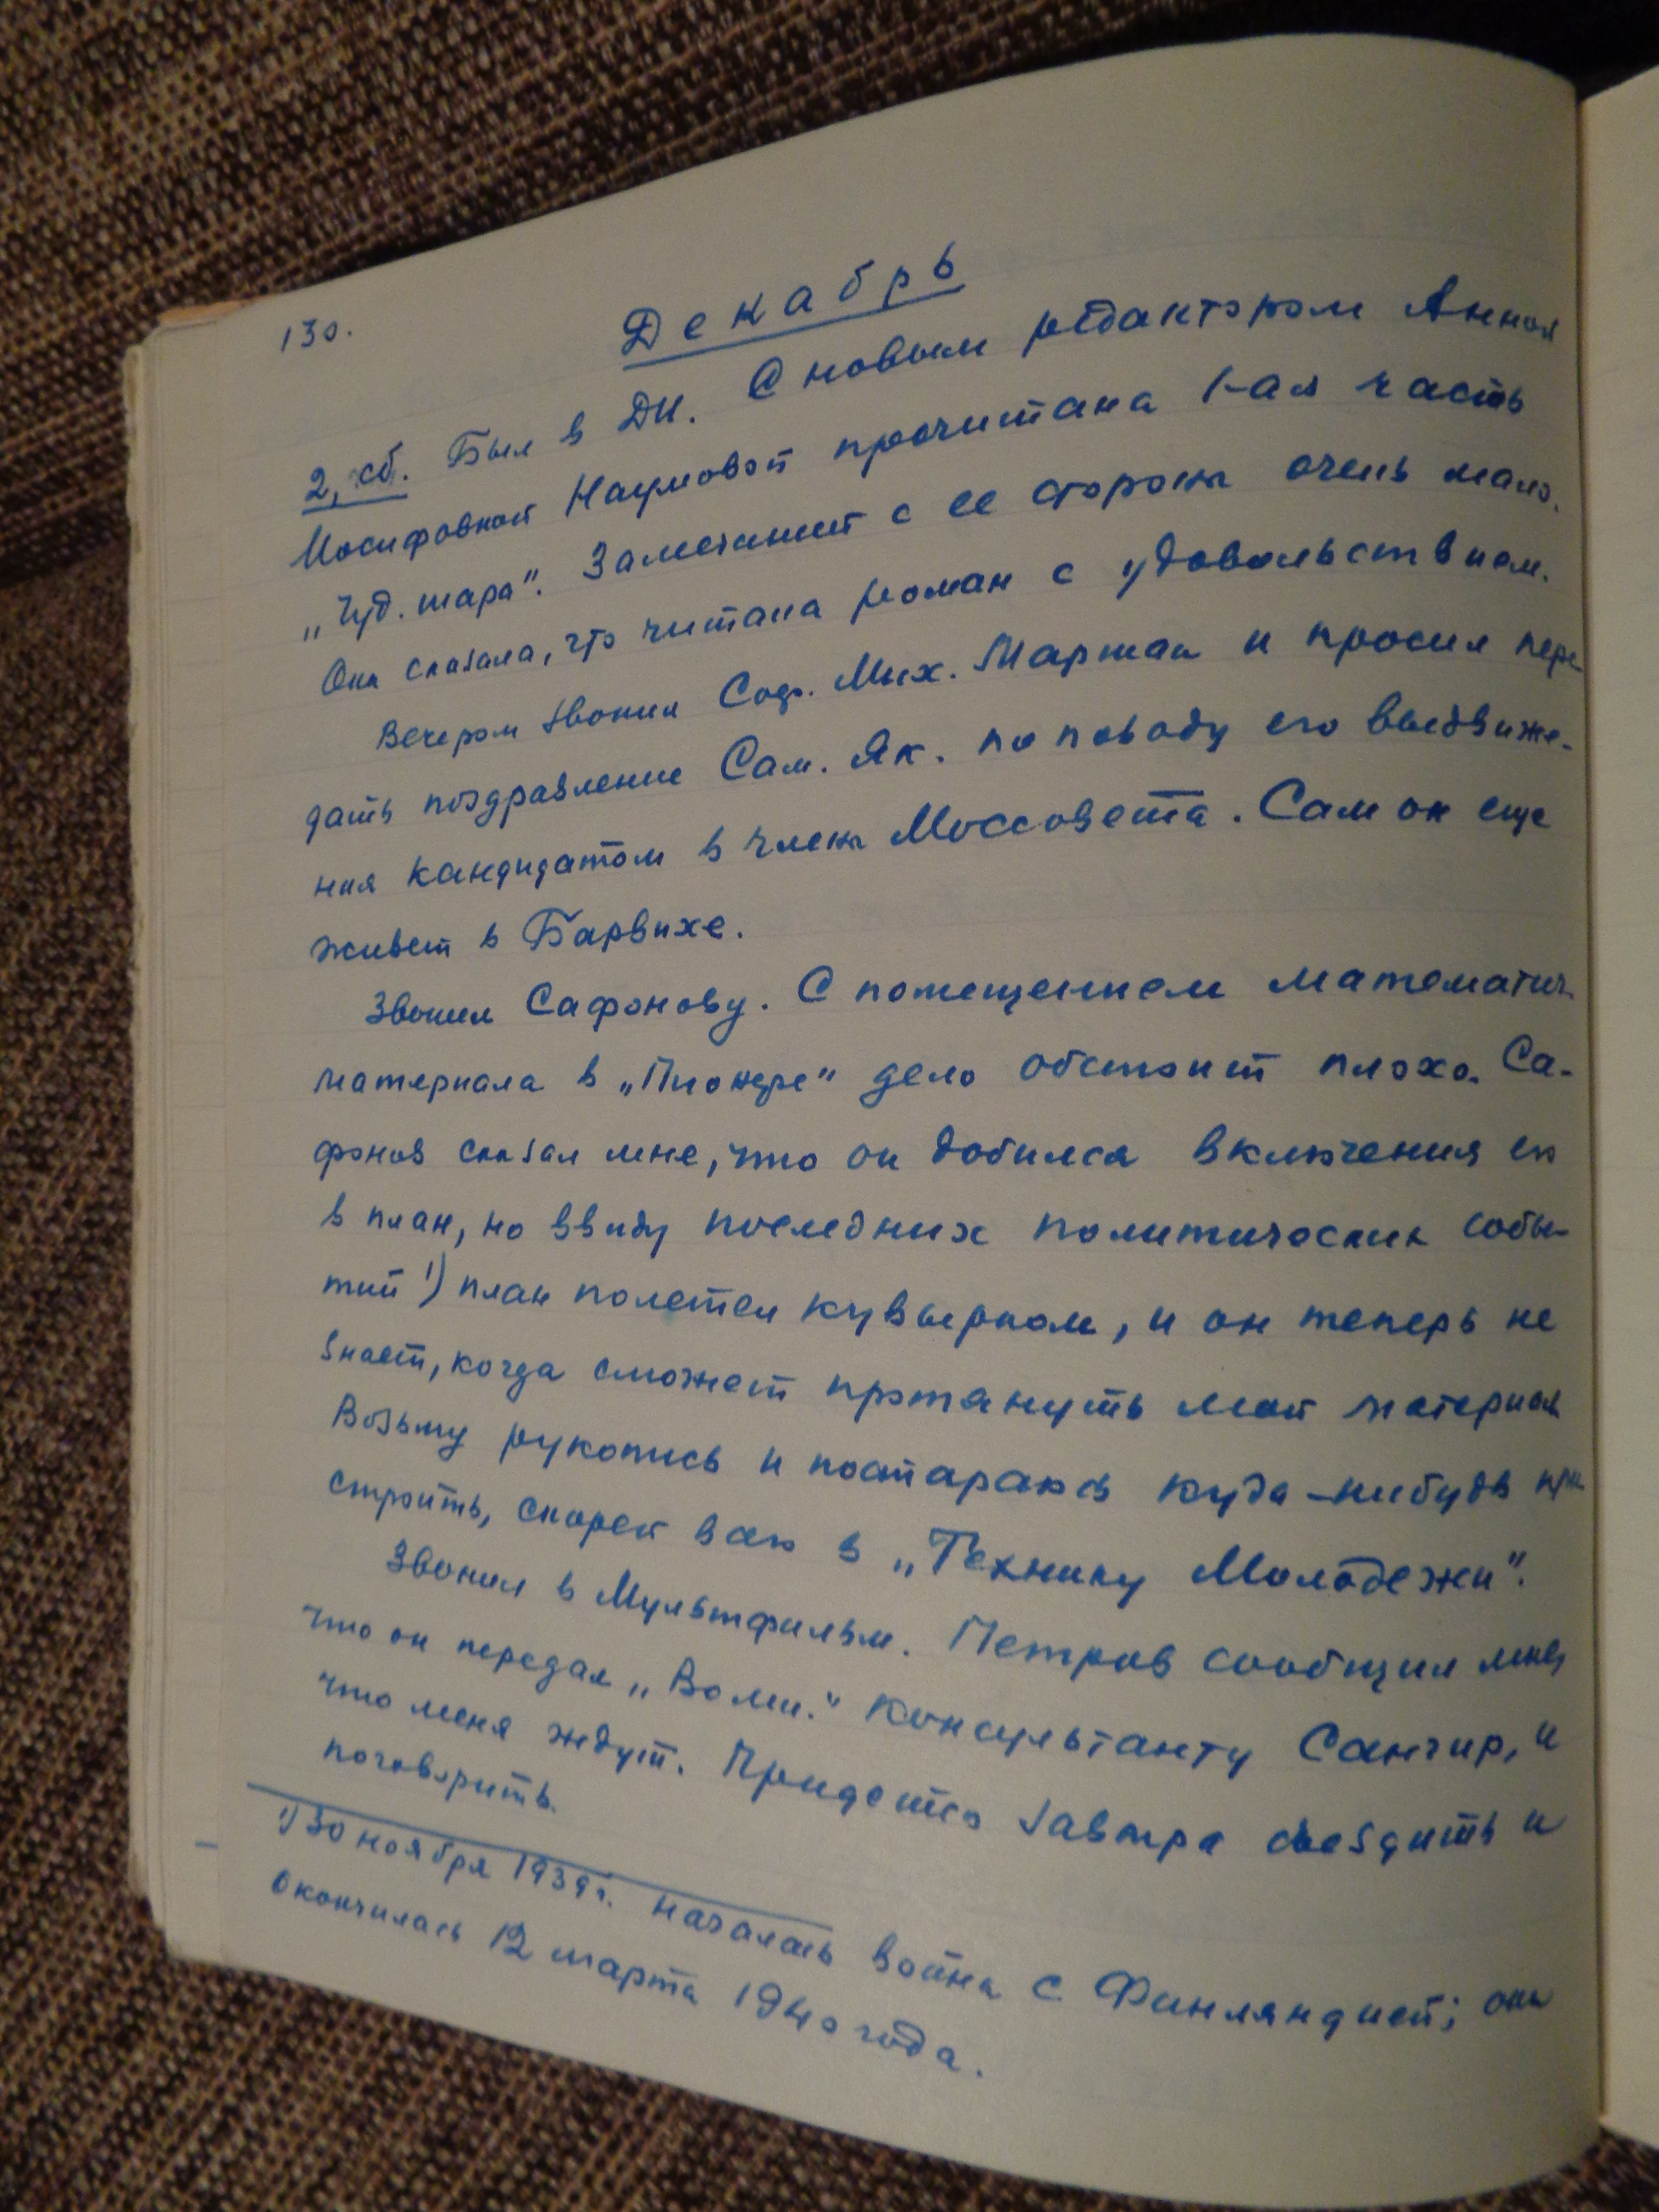 130.
Декабрь
2, сб. Был в ДИ. С новым редактором Анной
Иосифовной Наумовой прочитана 1-ая часть
„Чуд. шара". Замечаний с ее стороны очень мало.
Она сказала, что читала роман с удовольствием.
Вечером звонил Соф. Мих. Маршак и просил пере-
дать поздравление Сам. Як. по поводу его выдвиже-
ния кандидатом в члены Моссовета. Сам он еще
живет в Барвихе.
Звонил Сафонову. С помещением математич.
материала в „Пионере" дело обстоит плохо. Са-
фонов сказал мне, что он добился включения его
в план, но ввиду последних политических собы-
тий 1) план полетел кувырком, и он теперь не
знает, когда сможет протянуть мой материал
Возьму рукопись и постараюсь куда-нибудь при-
строить, скорей всего в „Технику Молодежи".
Звонил в Мультфильм. Петров сообщил мне,
что он передал „Волш." консультанту Сангир, и
что меня ждут. Придется завтра съездить и
поговорить.
1) 30 ноября 1939 г. началась война с Финляндией; она
окончилась 12 марта 1940 года.